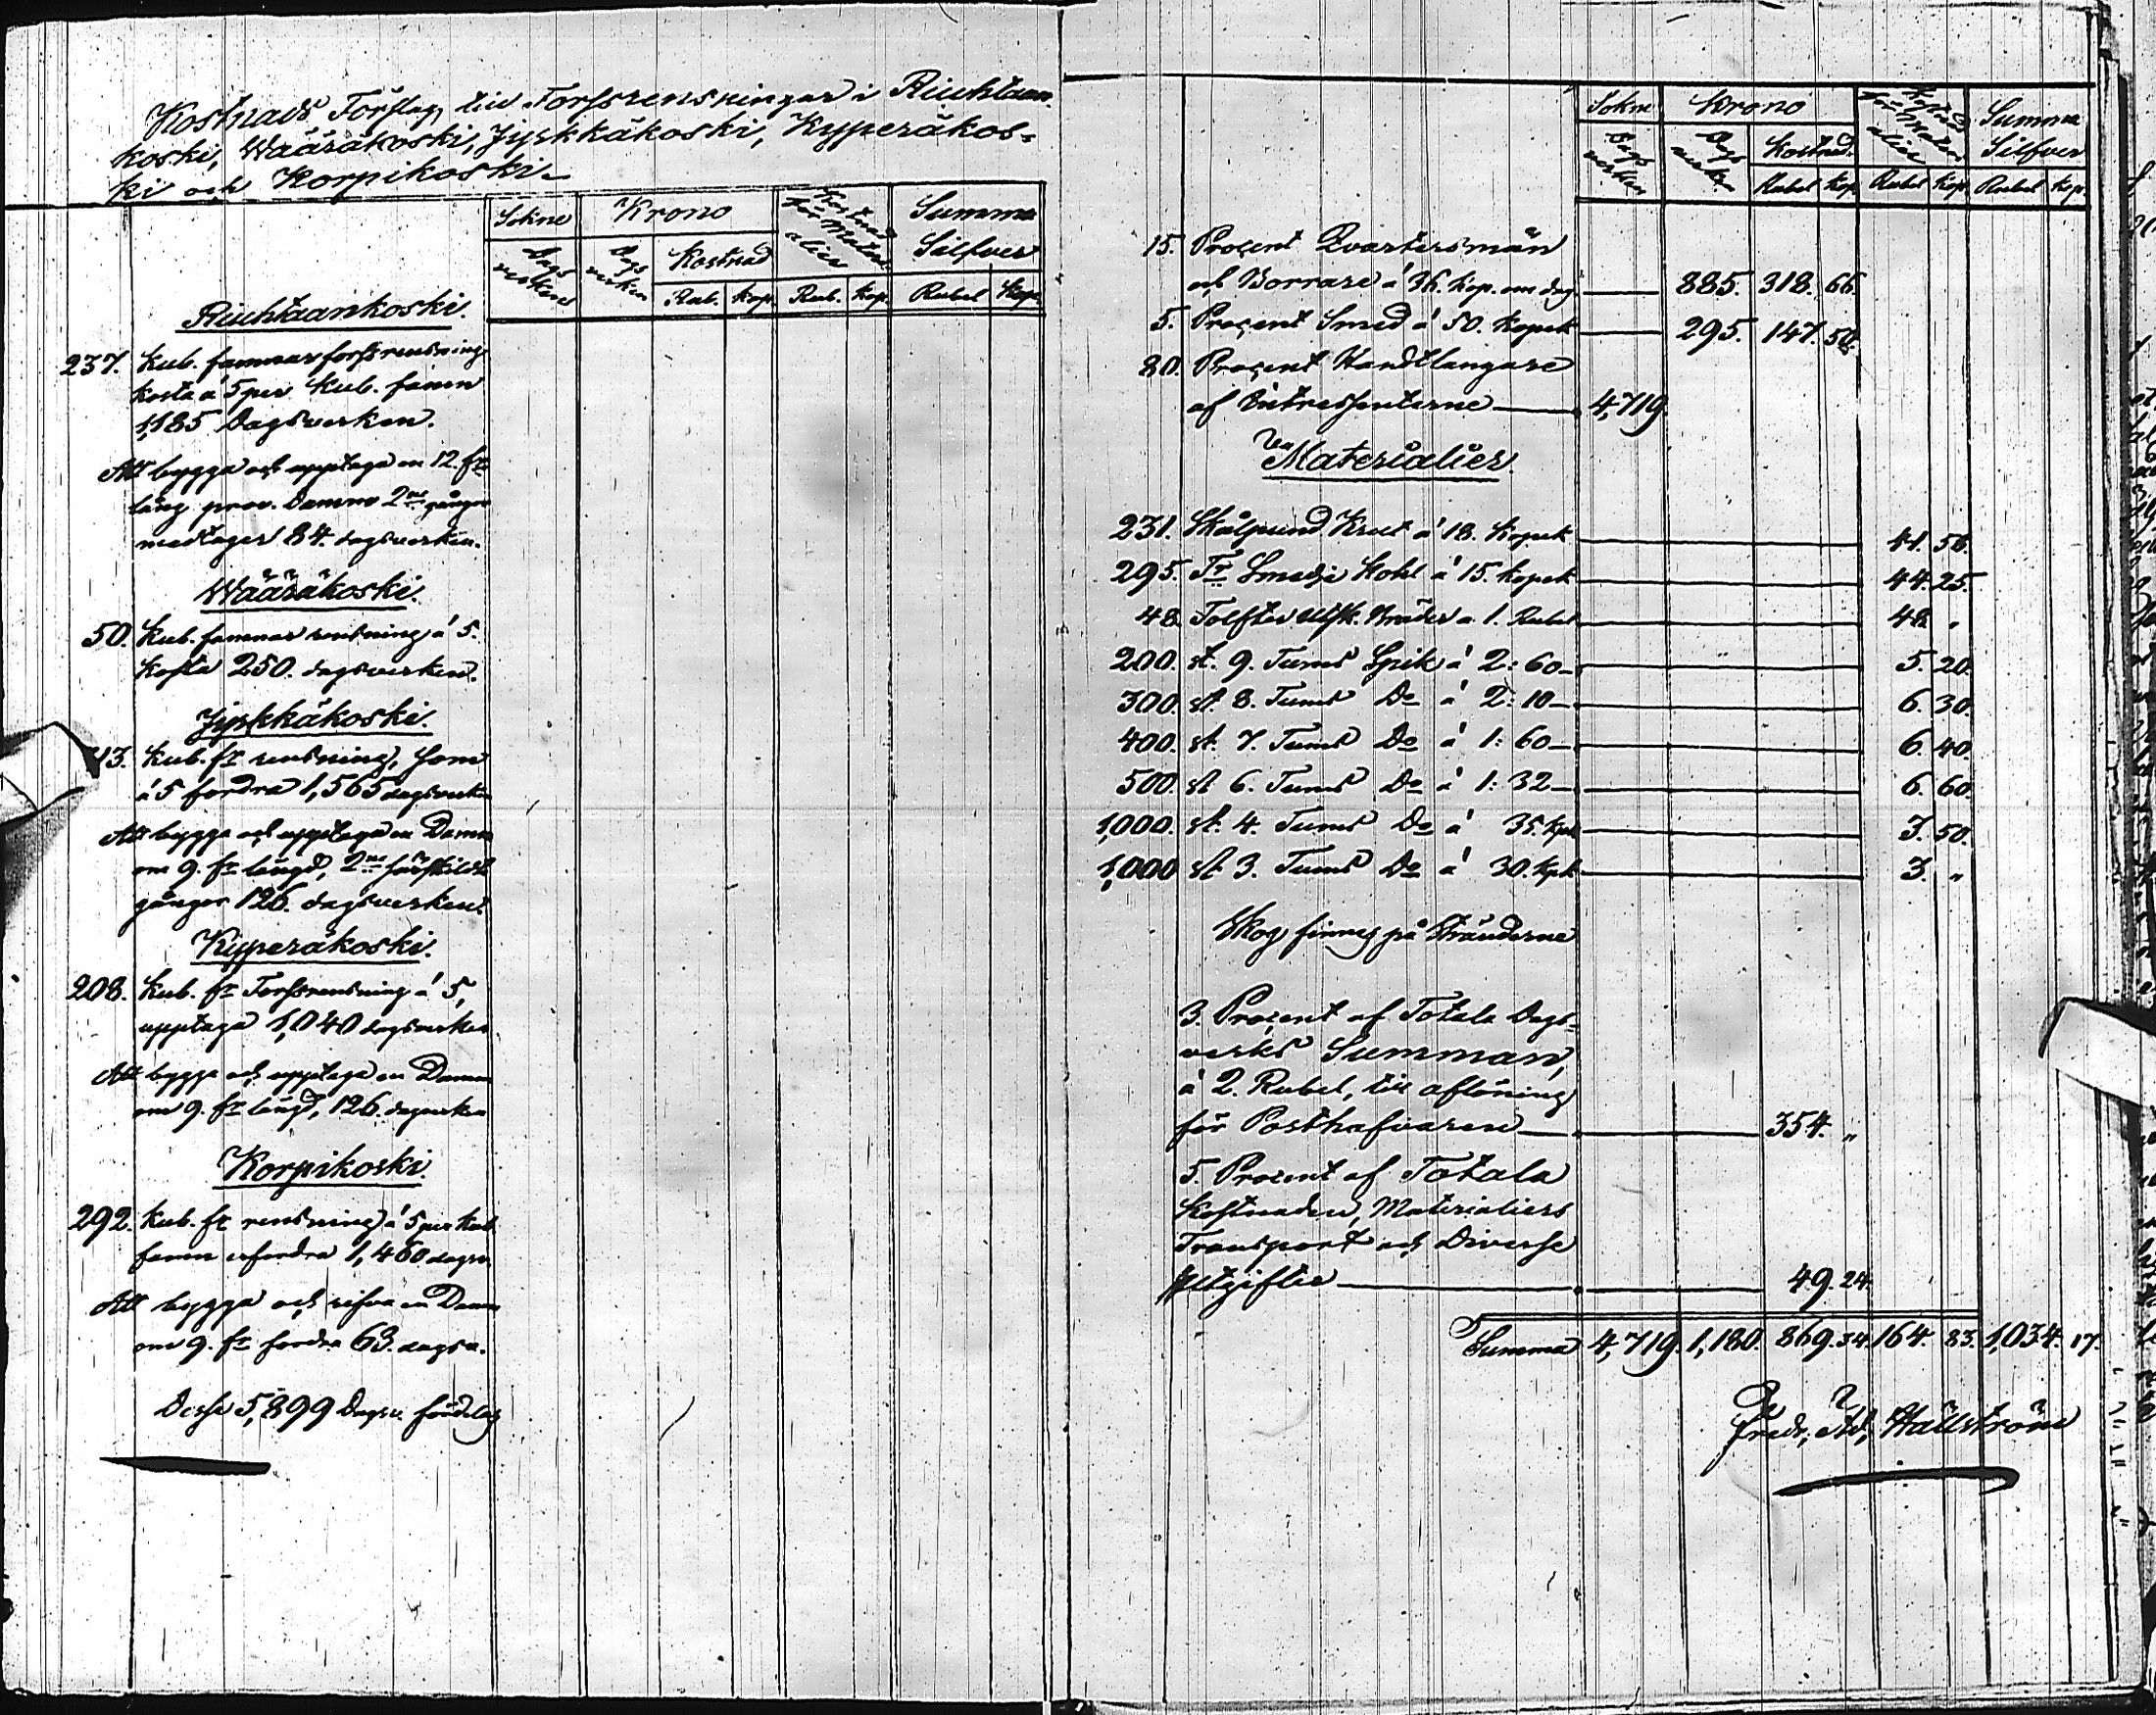 Kostnads Förslag till Forssrensningar i Riuhtaan
koski, Wääräkoski, Jyrkkäkoski, Kyperäkos=
ki och Korpikoski
Sokne Krono Kostnad för Materi alier Summa Silfver
Dags verken Dags verken Kostnad
Rub. Kop. Rub. Kop. Rubel Kop.
Riuhtaankoski.
237. Kub. famnar forssrensning
kosta á 5 per Kub. famn
1,185 Dagsverken.
Att bygga och upptaga en 12. fr
lång prov. Damm 2ne gånger
medtager 84. dagsverken.
Wääräkoski.
50. Kub. famnar rensning á 5.
kosta 250. dagsverken.
Jyrkkäkoski.
13. Kub. fr rensning, som
á 5 fordra 1,565 dagsverken
Att bygga och upptaga en Damm
om 9. fr längd, 2ne särskilda
gånger 126. dagsverken.
Kyperäkoski.
208. Kub. fr Forssrensning á 5,
upptaga 1,040 dagsverken
Att bygga och upptaga en Damm
om 9. fr längd, 126. dagsverken
Korpikoski.
292. Kub. fr rensning á 5 per Kub.
famn erfordra 1,460 dagsv.
Att bygga och rifva en Damm
om 9. fr fordra 63. dagsv.
Desse 5,899 Dagsv. fördelas
Sokne Krono Kostnad för Materi alier Summa Silfver
Dags verken Dags verken Kostnad.
Rubel Kop. Rubel Kop. Rubel Kop.
15. Procent Qvartersmän
och Borrare á 36. Kop. om dag. 885. 318. 66.
5. Procent Smed á 50. Kopek 295. 147. 50.
80. Procent Handtlangare
af Intressenterne 4,719.
Materialier.
231. Skålpund Krut á 18. Kopek 41. 58.
295. Tr Smedje Kohl á 15. Kopek 44. 25.
48. Tolfter Utsk. Bräder a 1. Rubel 48. "
200. st. 9. Tums Spik á 2: 60 5. 20.
300. st 8. Tums Do á 2: 10 6. 30.
400. st. 7. Tums Do á 1: 60 6. 40.
500. st 6. Tums Do á 1: 32 6. 60.
1,000. st. 4. Tums Do á 35. Kpk 3. 50.
1,000 st 3. Tums Do á 30. Kpk 3. "
Skog finnes på Stränderne
3. Procent af Totala Dags=
verks Summan,
á 2. Rubel, till aflöning
för Posthafvaren 354. "
5. Procent af Totala
Kostnaden, Materialiers
Transport och Diverse
Utgifter 49. 24.
Summa 4,719. 1,180. 869. 34. 164. 83. 1,034. 17.
Fredr. Ad. Hällström